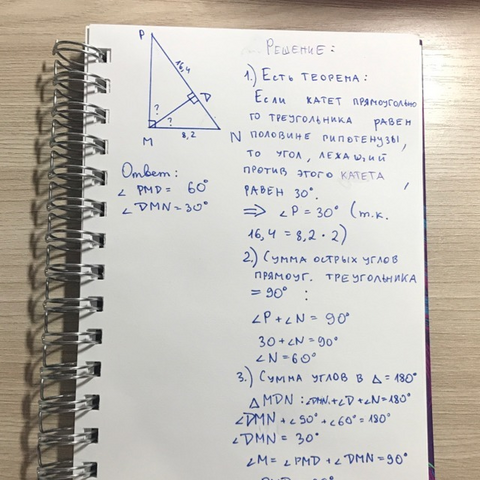 P
16,4
D
?
?
M
8,2
N
Ответ:
∠ PMD = 60°
∠ DMN = 30°
Решение:
1.) Есть теорена:
Если катет прямоугольно
го треугольника равен
половине гипотенузы,
то угол, лежащий
против этого катета,
равен 30°.
⇒ ∠P = 30° (т.к.
16,4 = 8,2 · 2)
2.) Сумма острых углов
прямоуг. треугольника
= 90° :
∠P + ∠N = 90°
30 + ∠N = 90°
∠N = 60°
3.) Сумма углов в Δ = 180°
Δ MDN : ∠DMN + ∠D + ∠N = 180°
∠DMN + ∠90° + ∠60° = 180°
∠DMN = 30°
∠M = ∠PMD + ∠DMN = 90°